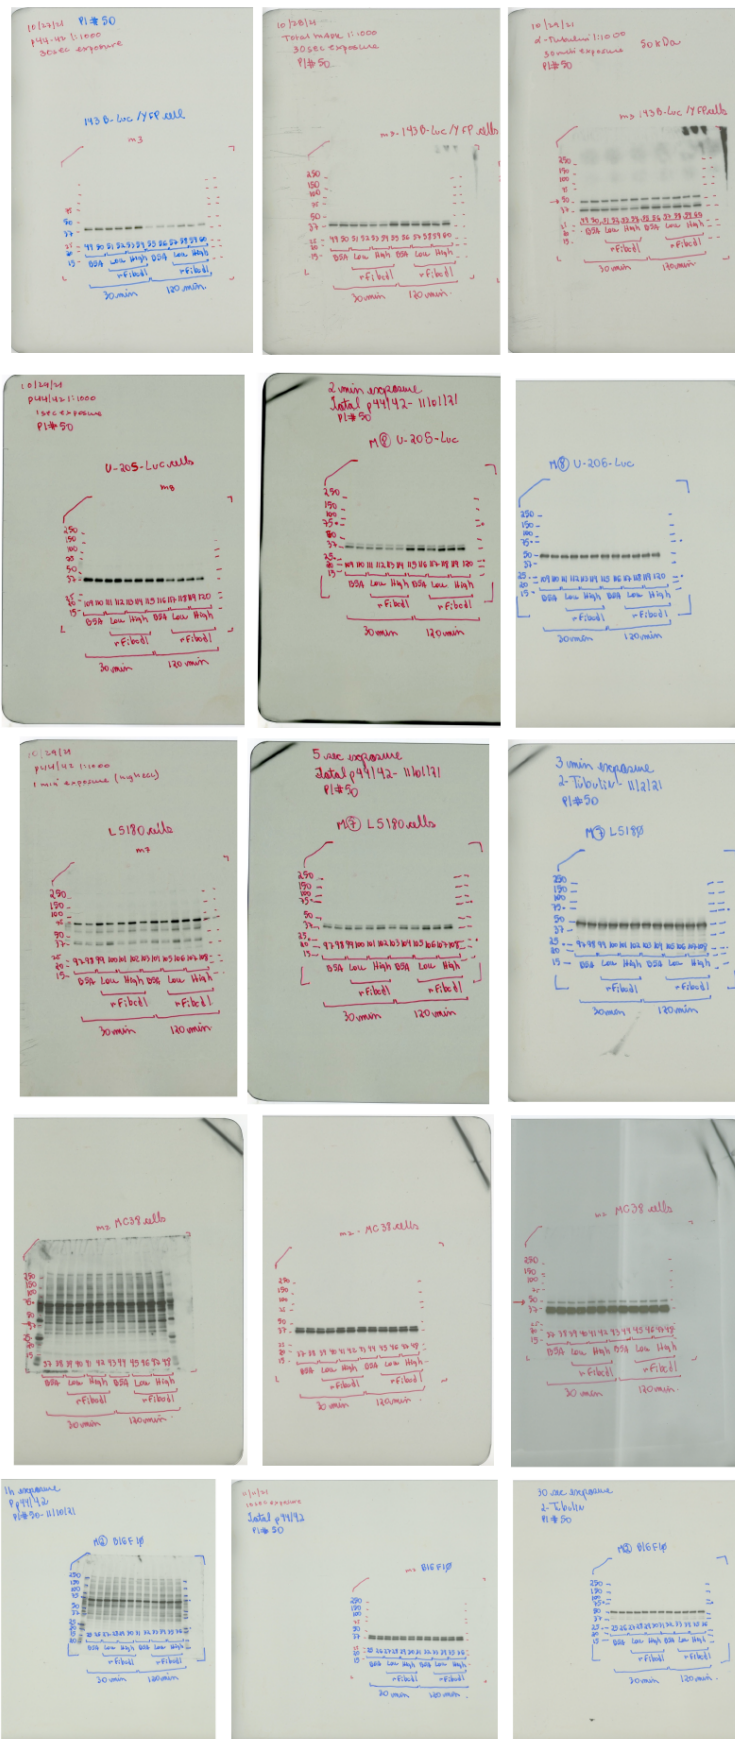 10/27/21 P1#50
p44-42 1:1000
30sec exposure
143B-Luc/YFP cell
m3
50
37
25
20
15-
49 50 51 52 53 54 55 56 57 58 59 60
BSA Low High BSA Low High
rFibcd1 rFibcd1
30min 120min.
10/28/21
Total MAPK 1:1000
30sec exposure
P1#50.
m3-143B-Luc/YFP cells
250
150
100
50
37
25
20
15-
49 50 51 52 53 54 55 56 57 58 59 60
BSA Low High BSA Low High
rFibcd1 rFibcd1
30min 120min.
10/29/21
2-Tubulin 1:1000
50kDa
P1#50
m3-143B-Luc/YFP cells
250
150
100
50
37
15-
BSA Low High BSA Low High
rFibcd1 rFibcd1
30min 120min.
10/29/21
p44/42 1:1000
1sec exposure
P1#50
U-205-Luc cells
m8
250
150
100
75
50
37
25
20
15-
109 110 111 112 113 114 115 116 117 118 119 120
BSA Low High BSA Low High
rFibcd1 rFibcd1
30min 120min
2 min exposure
Total p44/42- 11/01/21
P1#50
M8 U-205-Luc
250
150
100
75
50
37
25
20
15-
109 110 111 112 113 114 115 116 117 118 119 120
BSA Low High BSA Low High
rFibcd1 rFibcd1
30min 120min
M8 U-205-Luc
250
150
100
75
50
37
25
20
15-
109 110 111 112 113 114 115 116 117 118 119 120
BSA Low High BSA Low High
rFibcd1 rFibcd1
30min 120min
10/29/21
p44/42 1:1000
1 min exposure (highecl)
LS180 cells
m7
250
150
100
75
50
37
25
20
15-
97 98 99 100 101 102 103 104 105 106 107 108
BSA Low High BSA Low High
rFibcd1 rFibcd1
30min 120min
5 sec exposure
Total p44/42- 11/01/21
P1#50
M7 LS180 cells
250
150
100
75
50
37
25
20
15-
97 98 99 100 101 102 103 104 105 106 107 108
BSA Low High BSA Low High
rFibcd1 rFibcd1
30min 120min
3 min exposure
2-Tubulin- 11/2/21
P1#50
M7 LS180
250
150
100
75
50
37
25
20
15-
97 98 99 100 101 102 103 104 105 106 107 108
BSA Low High BSA Low High
rFibcd1 rFibcd1
30min 120min
m2 MC38 cells
250
150
100
75
50
37
25
20
15
37 38 39 40 41 42 43 44 45 46 47 48
BSA Low High BSA Low High
rFibcd1 rFibcd1
30min 120min.
m2- MC38 cells
250
150
100
50
37
25
20
15-
37 38 39 40 41 42 43 44 45 46 47 48
BSA Low High BSA Low High
rFibcd1 rFibcd1
30min 120min.
m2 MC38 cells
250
150
100
50
37
15-
37 38 39 40 41 42 43 44 45 46 47 48
BSA Low High BSA Low High
rFibcd1 rFibcd1
30min 120min.
1h exposure
Pp44/42
P1#50-11/10/21
B16F10
250
150
100
75
50
37
BSA Low High BSA Low High
rFibcd1 rFibcd1
30min 120min
Total p44/42
P1#50
B16F10
250
150
100
50
37
15
25 26 27 28 29 30 31 32 33 34 35 36
BSA Low High BSA Low High
rFibcd1 rFibcd1
30min 120min
30 sec exposure
2-Tubulin
P1#50
B16F10
250
150
100
75
50
37
25
20
15
25 26 27 28 29 30 31 32 33 34 35 36
BSA Low High BSA Low High
rFibcd1 rFibcd1
30min 120min